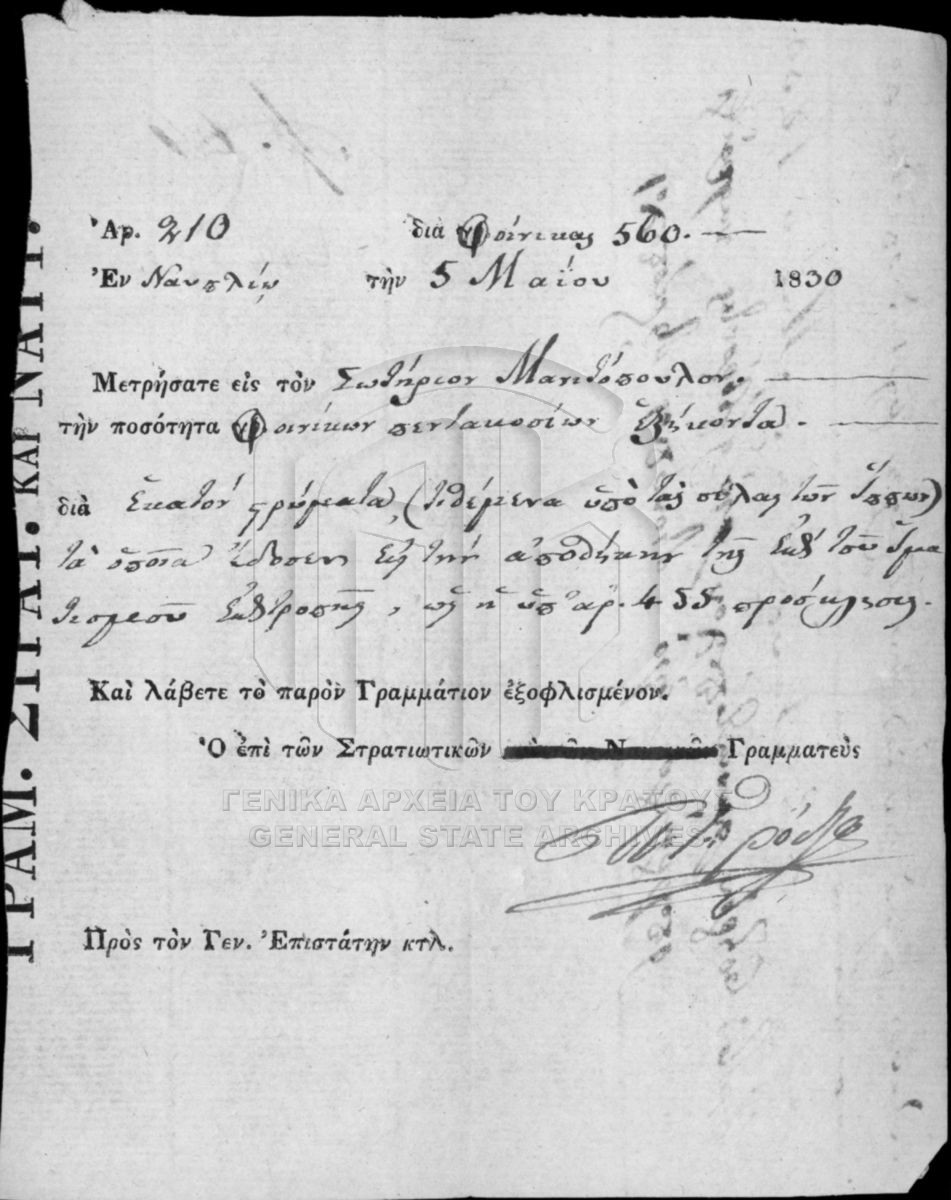 Ἀρ. 210 διὰ φοίνικας 560.—
Ἐν Ναυπλίῳ τὴν 5 Μαΐου 1830
Μετρήσατε εἰς τὸν Σωτήριον Μανιτόπουλον.
τὴν ποσότητα φοινίκων πεντακοσίων ἑξήκοντα.
διὰ ἑκατὸν στρώματα (τιθέμενα ὑπὸ τὰς σέλας τῶν ἵππων)
τὰ ὁποῖα ἔδοσεν εἰς τὴν ἀποθήκην τῆς ἐπὶ τοῦ ἱμα
τισμοῦ ἐπιτροπῆς, ὡς ἡ ὑπ' ἀρ. 455 πρόσκλησις.
Καὶ λάβετε τὸ παρὸν Γραμμάτιον ἐξοφλισμένον.
Ὁ ἐπὶ τῶν Στρατιωτικῶν Γραμματεὺς
Πρὸς τὸν Γεν. Ἐπιστάτην κτλ.
ΓΡΑΜ. ΣΤΡΑΤ. ΚΑΙ ΝΑΥΤ.
ΓΕΝΙΚΑ ΑΡΧΕΙΑ ΤΟΥ ΚΡΑΤΟΥΣ
GENERAL STATE ARCHIVES